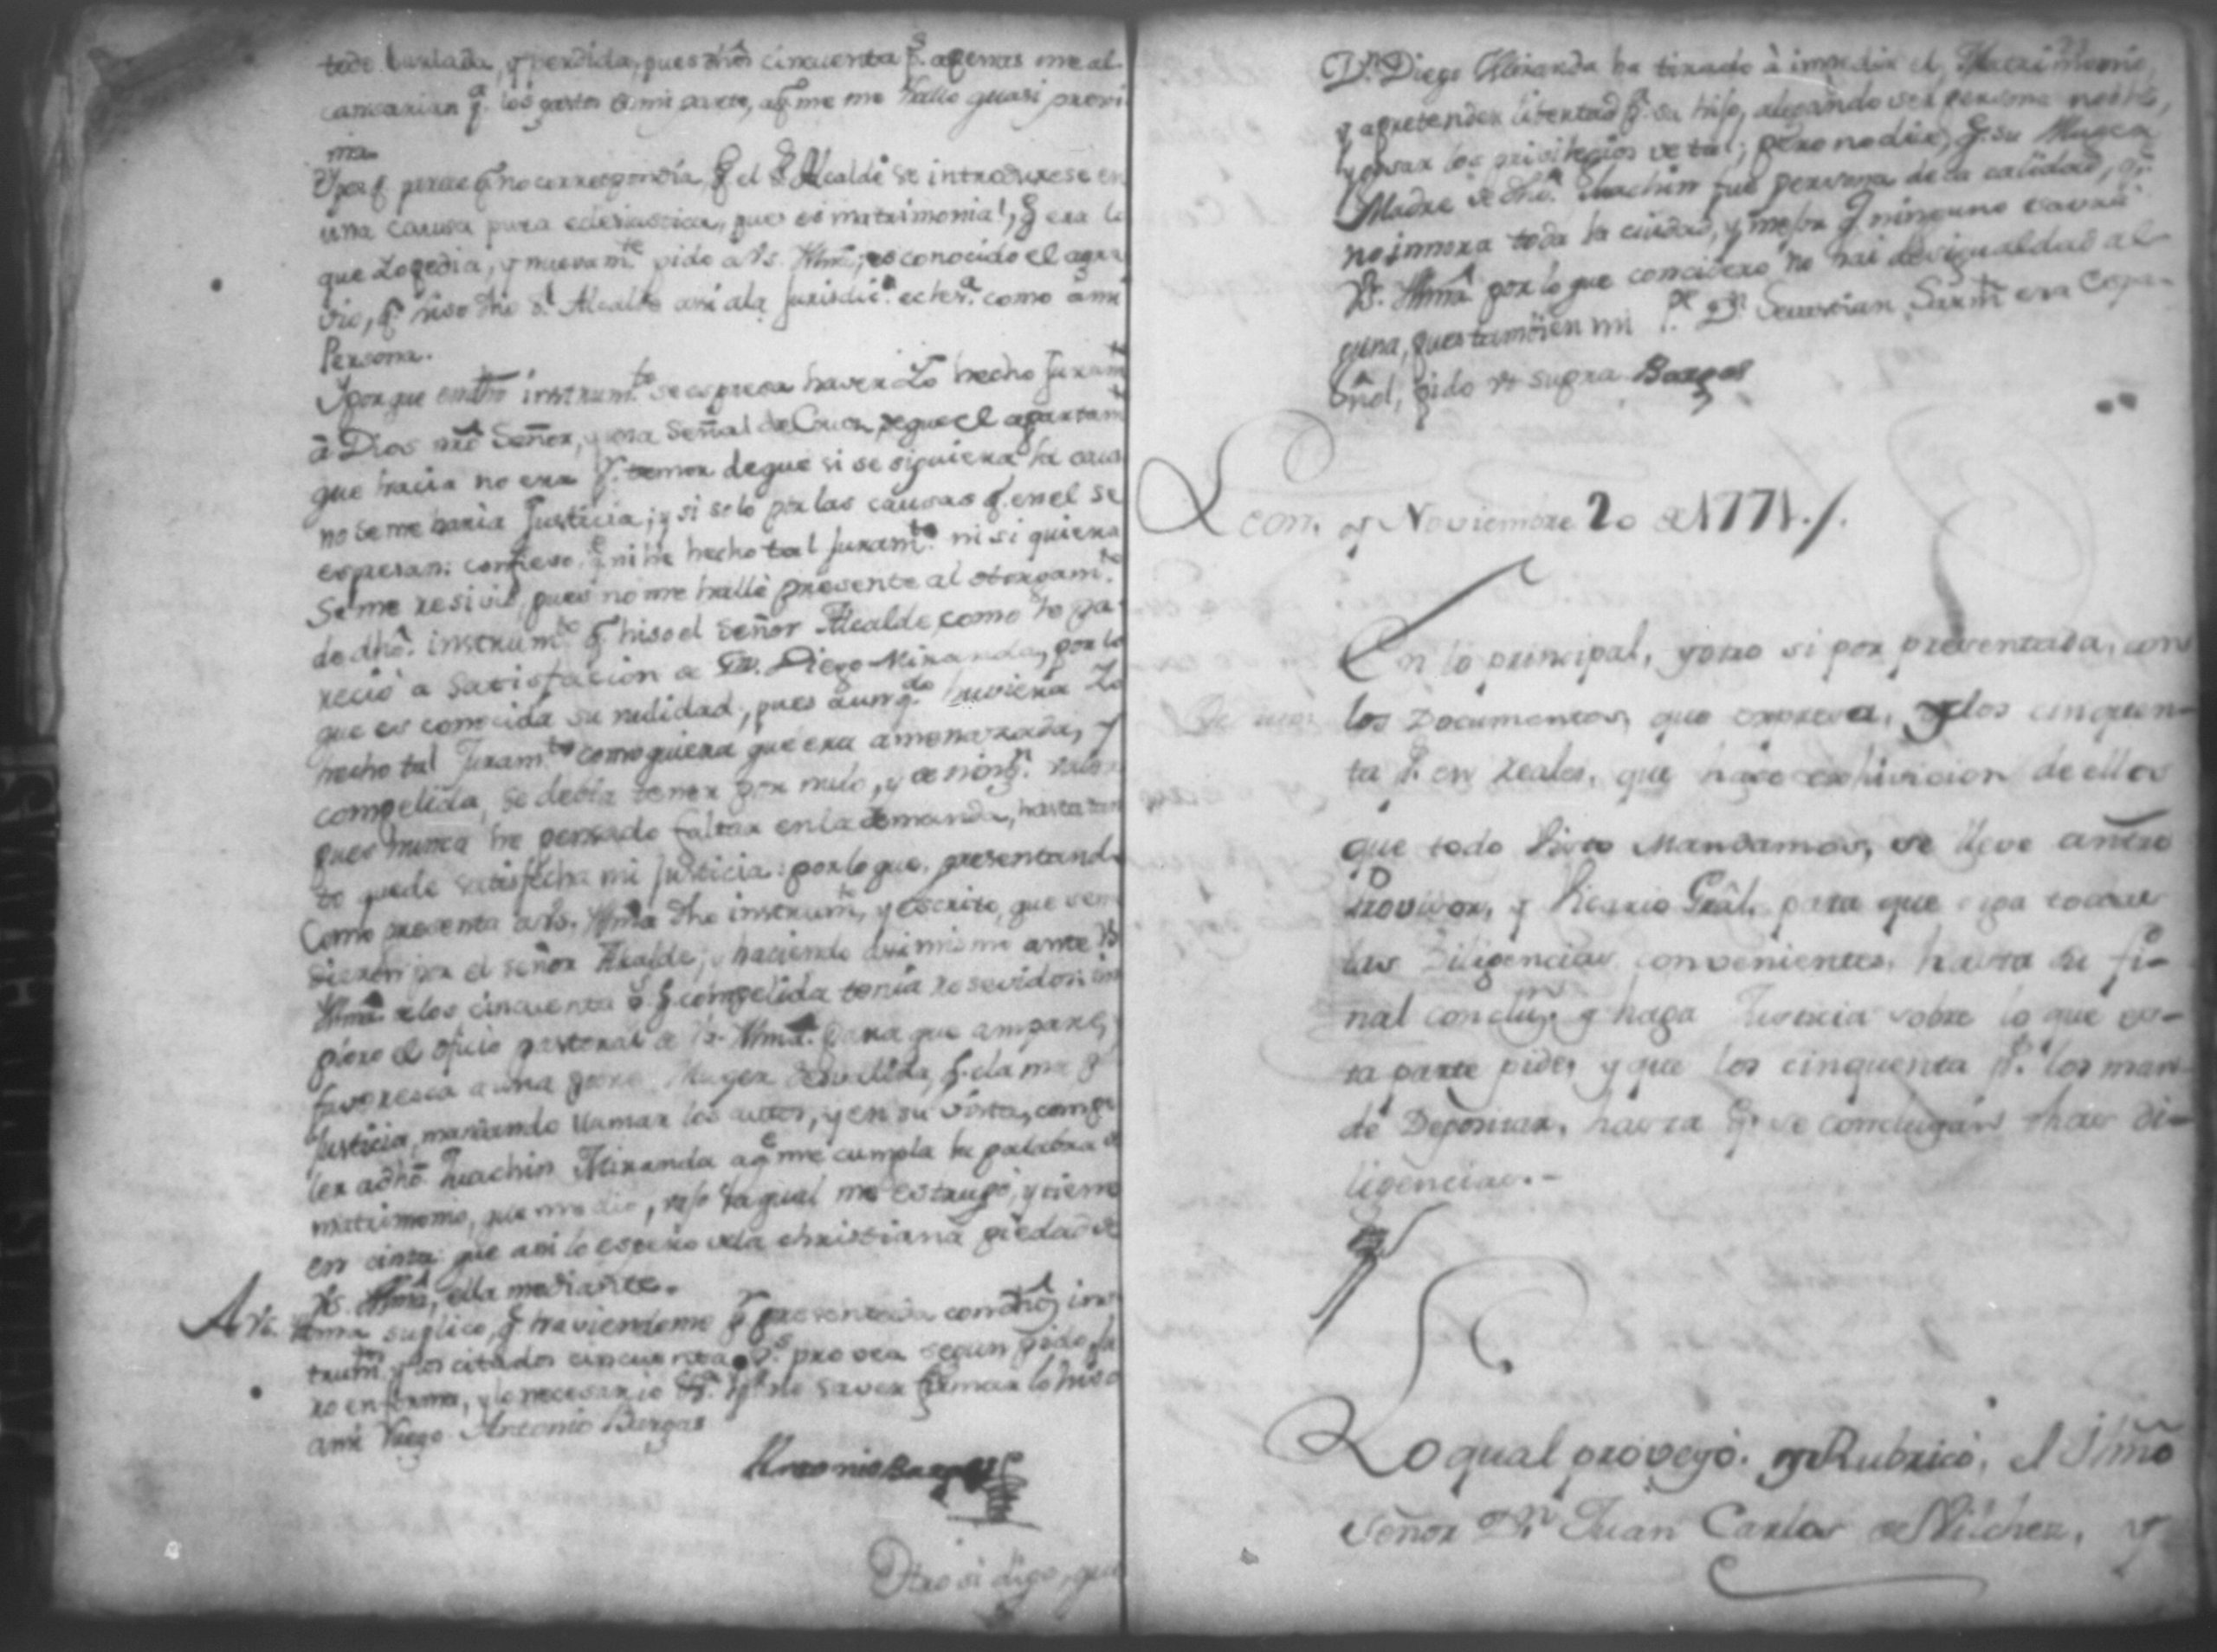 todo burlada, y perdida, pues dhos cincuenta p.s apenas me al-
cansarian p.a los gastos de mi parto, aq.e me me hallo quasi provi
ma
Yporq. parece q. no correspondia, q. el S.r Alcalde se introduxese en
una causa pura eclesiastica, pues es matrimonial, q. era lo
que Lopedia, y nuevam.te pido a V.s. Illma, es conocido el agra
vio, q. hiso dho S.r Alcalde asi ala Jurisdic.n ecles.a como ami
Persona.
Yporque en dho instrum.to se espresa haver Lo hecho Juram.to
à Dios nro Señor, y una Señal de Cruz, de que el apartam.to
que hacia no era p.r temor de que si se siguiera la causa
no se me haria Justicia; y si solo por las causas q. en el se
espresan: confieso q.e ni he hecho tal Juram.to ni si quiera
Se me resivió, pues no me hallè presente al otorgam.to
de dho. instrum.to q. hiso el Señor Alcalde, como le pa-
reció a Satisfacion de D.n Diego Miranda, por lo
que es conocida su nulidad, pues aunq.do huviera Lo
hecho tal Juram.to como quiera que era amenazada, y
compelida, se debia tener por nulo, y de ning.n valor
pues nunca he pensado faltar en la demanda, hasta tan
to quede satisfecha mi Justicia: por lo que, presentando
Como presento a V.s. Illma dho instrum.to, y escrito, que se me
dieron por el señor Alcalde; y haciendo asi mismo ante V.s
Illma. de los cincuenta p.s q. compelida tenia resevidos, im
ploro el oficio pastoral de V.s. Illma. para que ampare, y
favoresca a una pobre Muger desvalida, q. clama p.r
Justicia, mandando llamar los autos, y en su vista, compe
ler adho Juachin Miranda aq.e me cumpla la palabra de
matrimonio, que me dio, vajo la qual me estrupó, y tiene
en cinta: que asi lo espero de la christiana piedad de
V.s. Illma, ella mediante.
A V.s. Illma suplico, q. haviendome p.r presentada con dho ins-
trum.to y los citados cincuenta p.s provea segun pido, Ju
ro en forma, y lo necesario &.a Yp.r no saver firmar lo hiso
ami Ruego Antonio Burgos
Antonio Burgos
Otro si digo, que
D.n Diego Miranda ha tirado à impedir el Matrimonio,
y apretender libertad p.a su hijo, alegando ser persona noble,
y gosar los privilegios de tal; pero no dice, q. su Muger
Madre de dho. Juachin fue persona de la calidad, q.e
no innora toda la ciudad, y mejor q. ninguno savrá
V.s. Illma por lo que concidero no hai desigualdad al-
guna, pues tambien mi P.e D.n Sevastian Sarm.to era Espa-
ñol, pido vt supra Burgos
Leon, y Noviembre 20 de 1771./.
En lo principal, y otro si por presentada, con
los Documentos, que expresa, y los cinquen-
ta p.s en reales, que hace exhivicion de ellos
que todo Visto Mandamos, se lleve a nuestro
Provisor, y Vicario Grâl, para que siga todas
las Diligencias convenientes, hasta su fi-
nal conclu.n y haga Justicia sobre lo que es-
ta parte pide, y que los cinquenta p.s los man-
de Depositar, hasta q. se concluyan dhas di-
ligencias.-
Lo qual proveyó. y Rubricó, el Illmo
Señor D.n Juan Carlos de Vilches, y